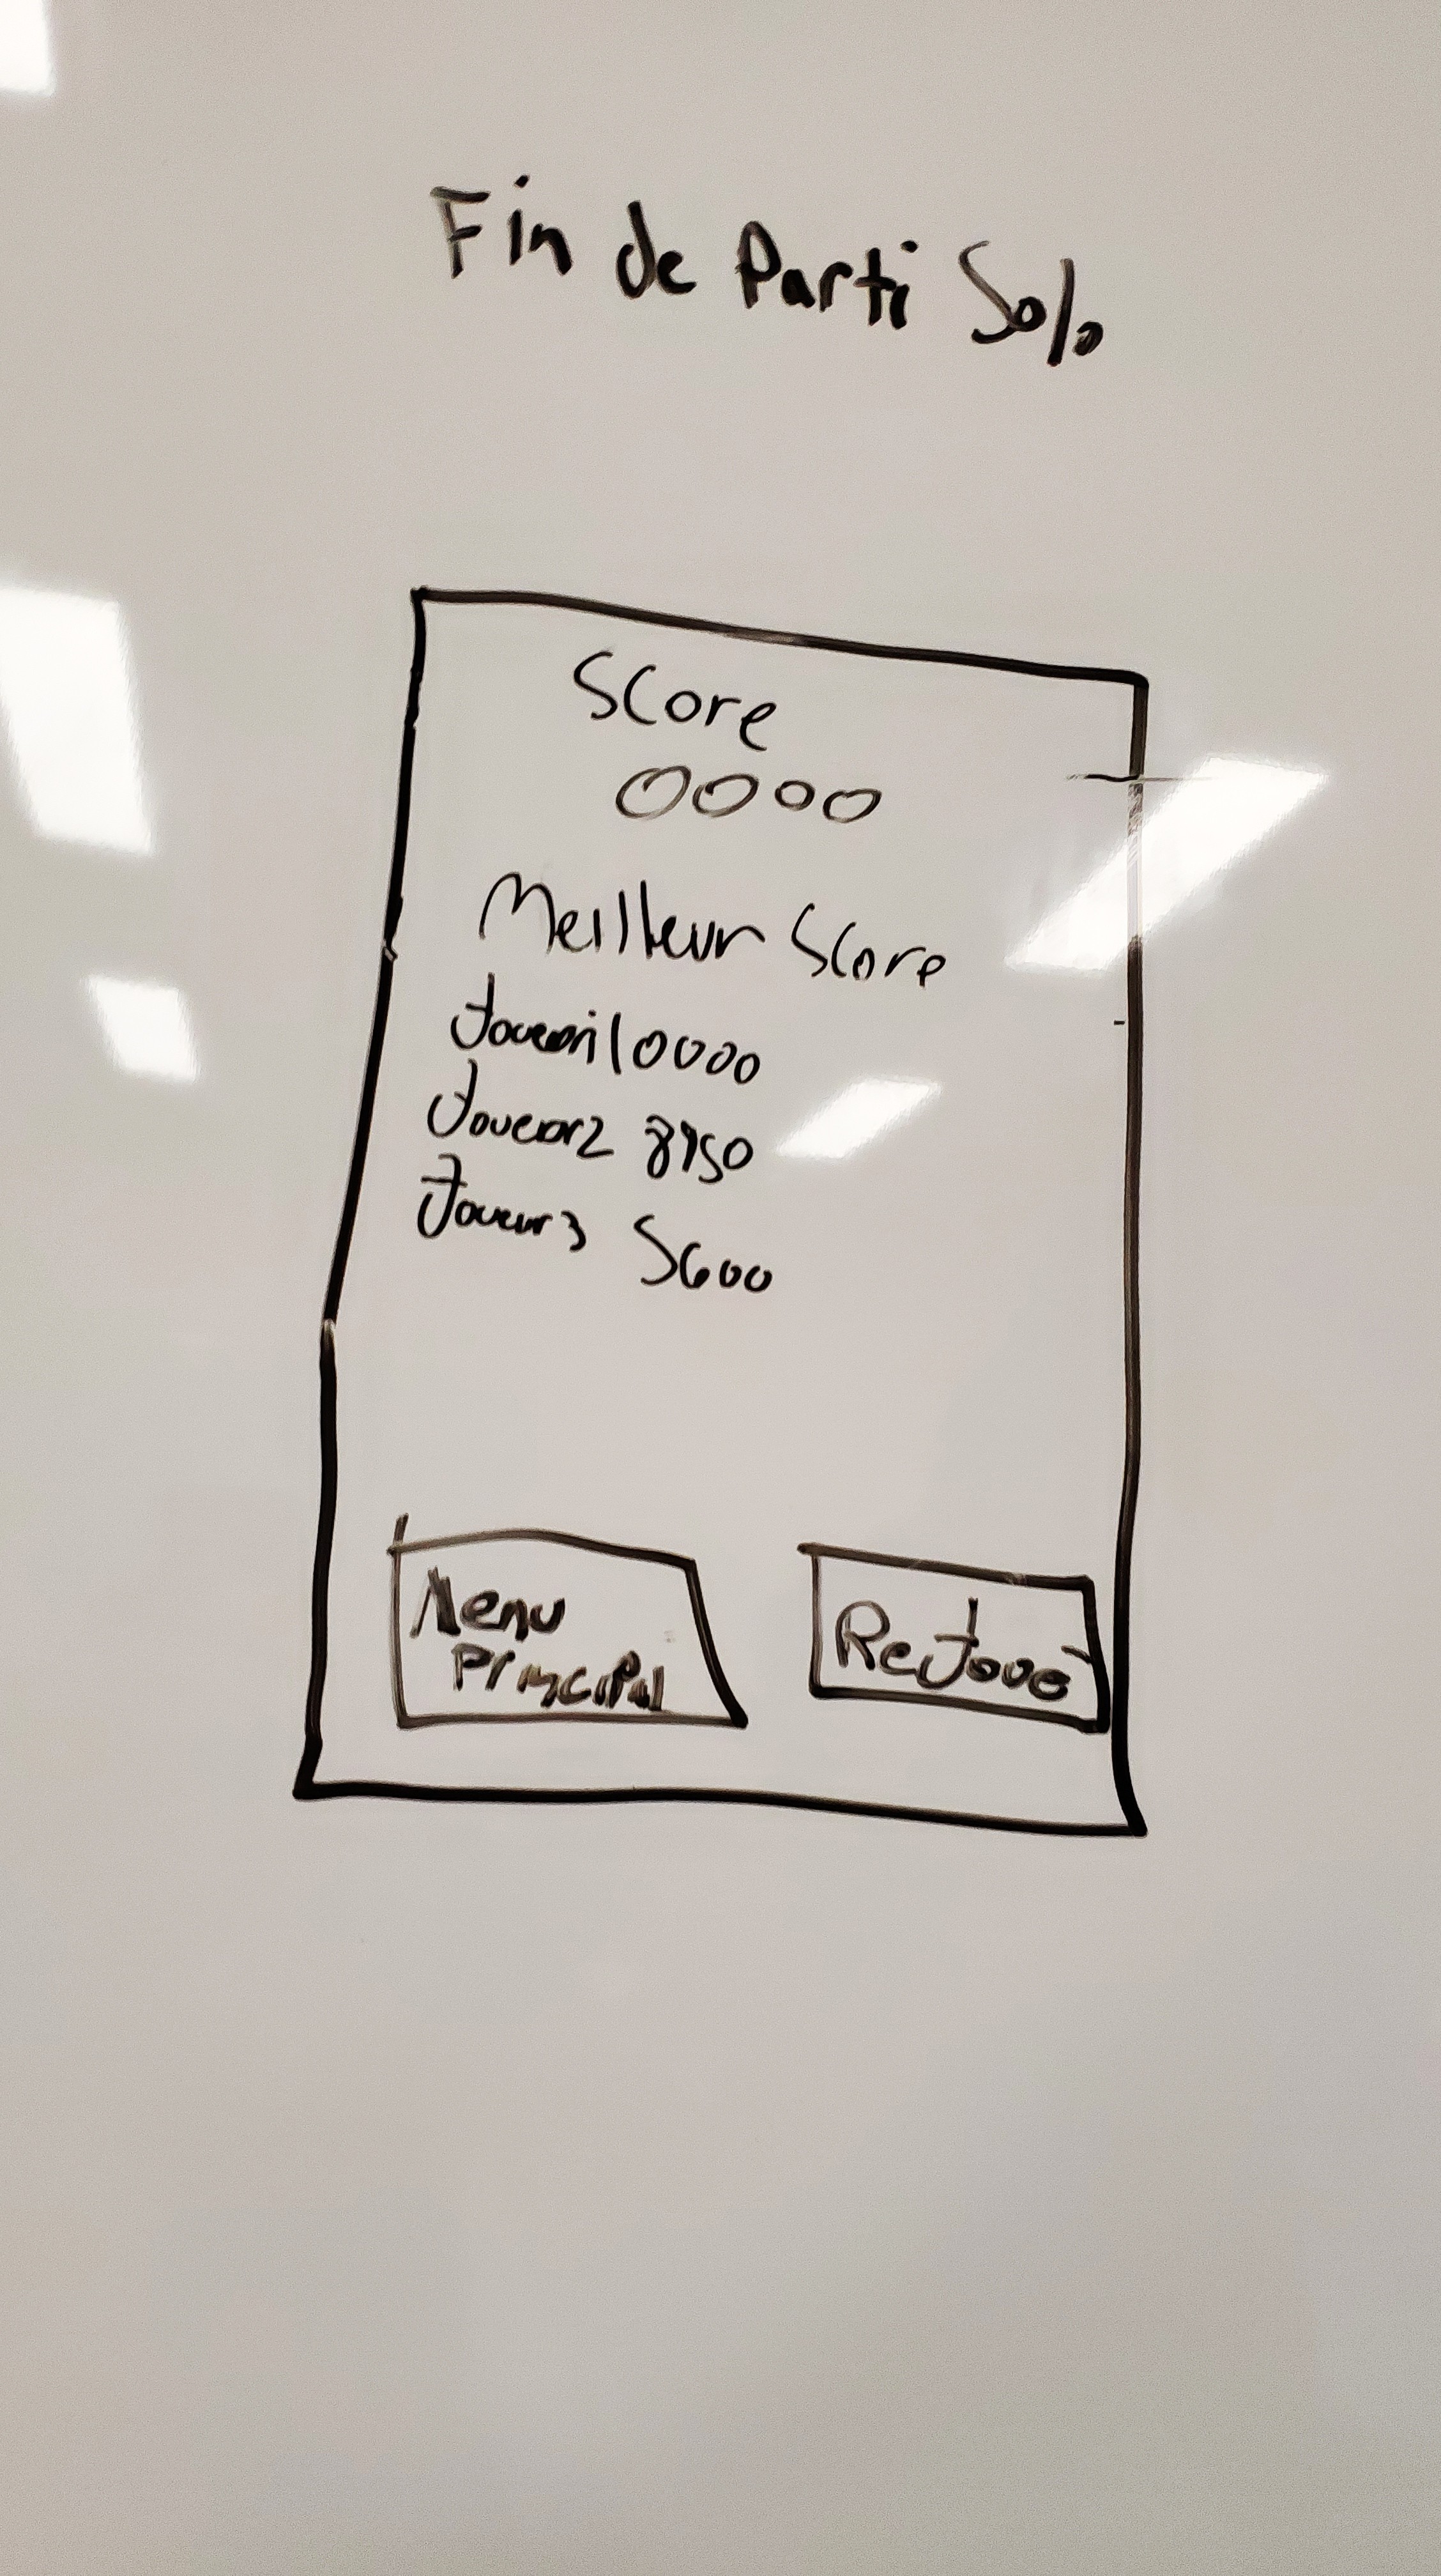 Fin de Parti Solo
Score
0000
Meilleur Score
Joueur1 10000
Joueur2 8950
Joueur3 5600
Menu
Principal
ReJoué